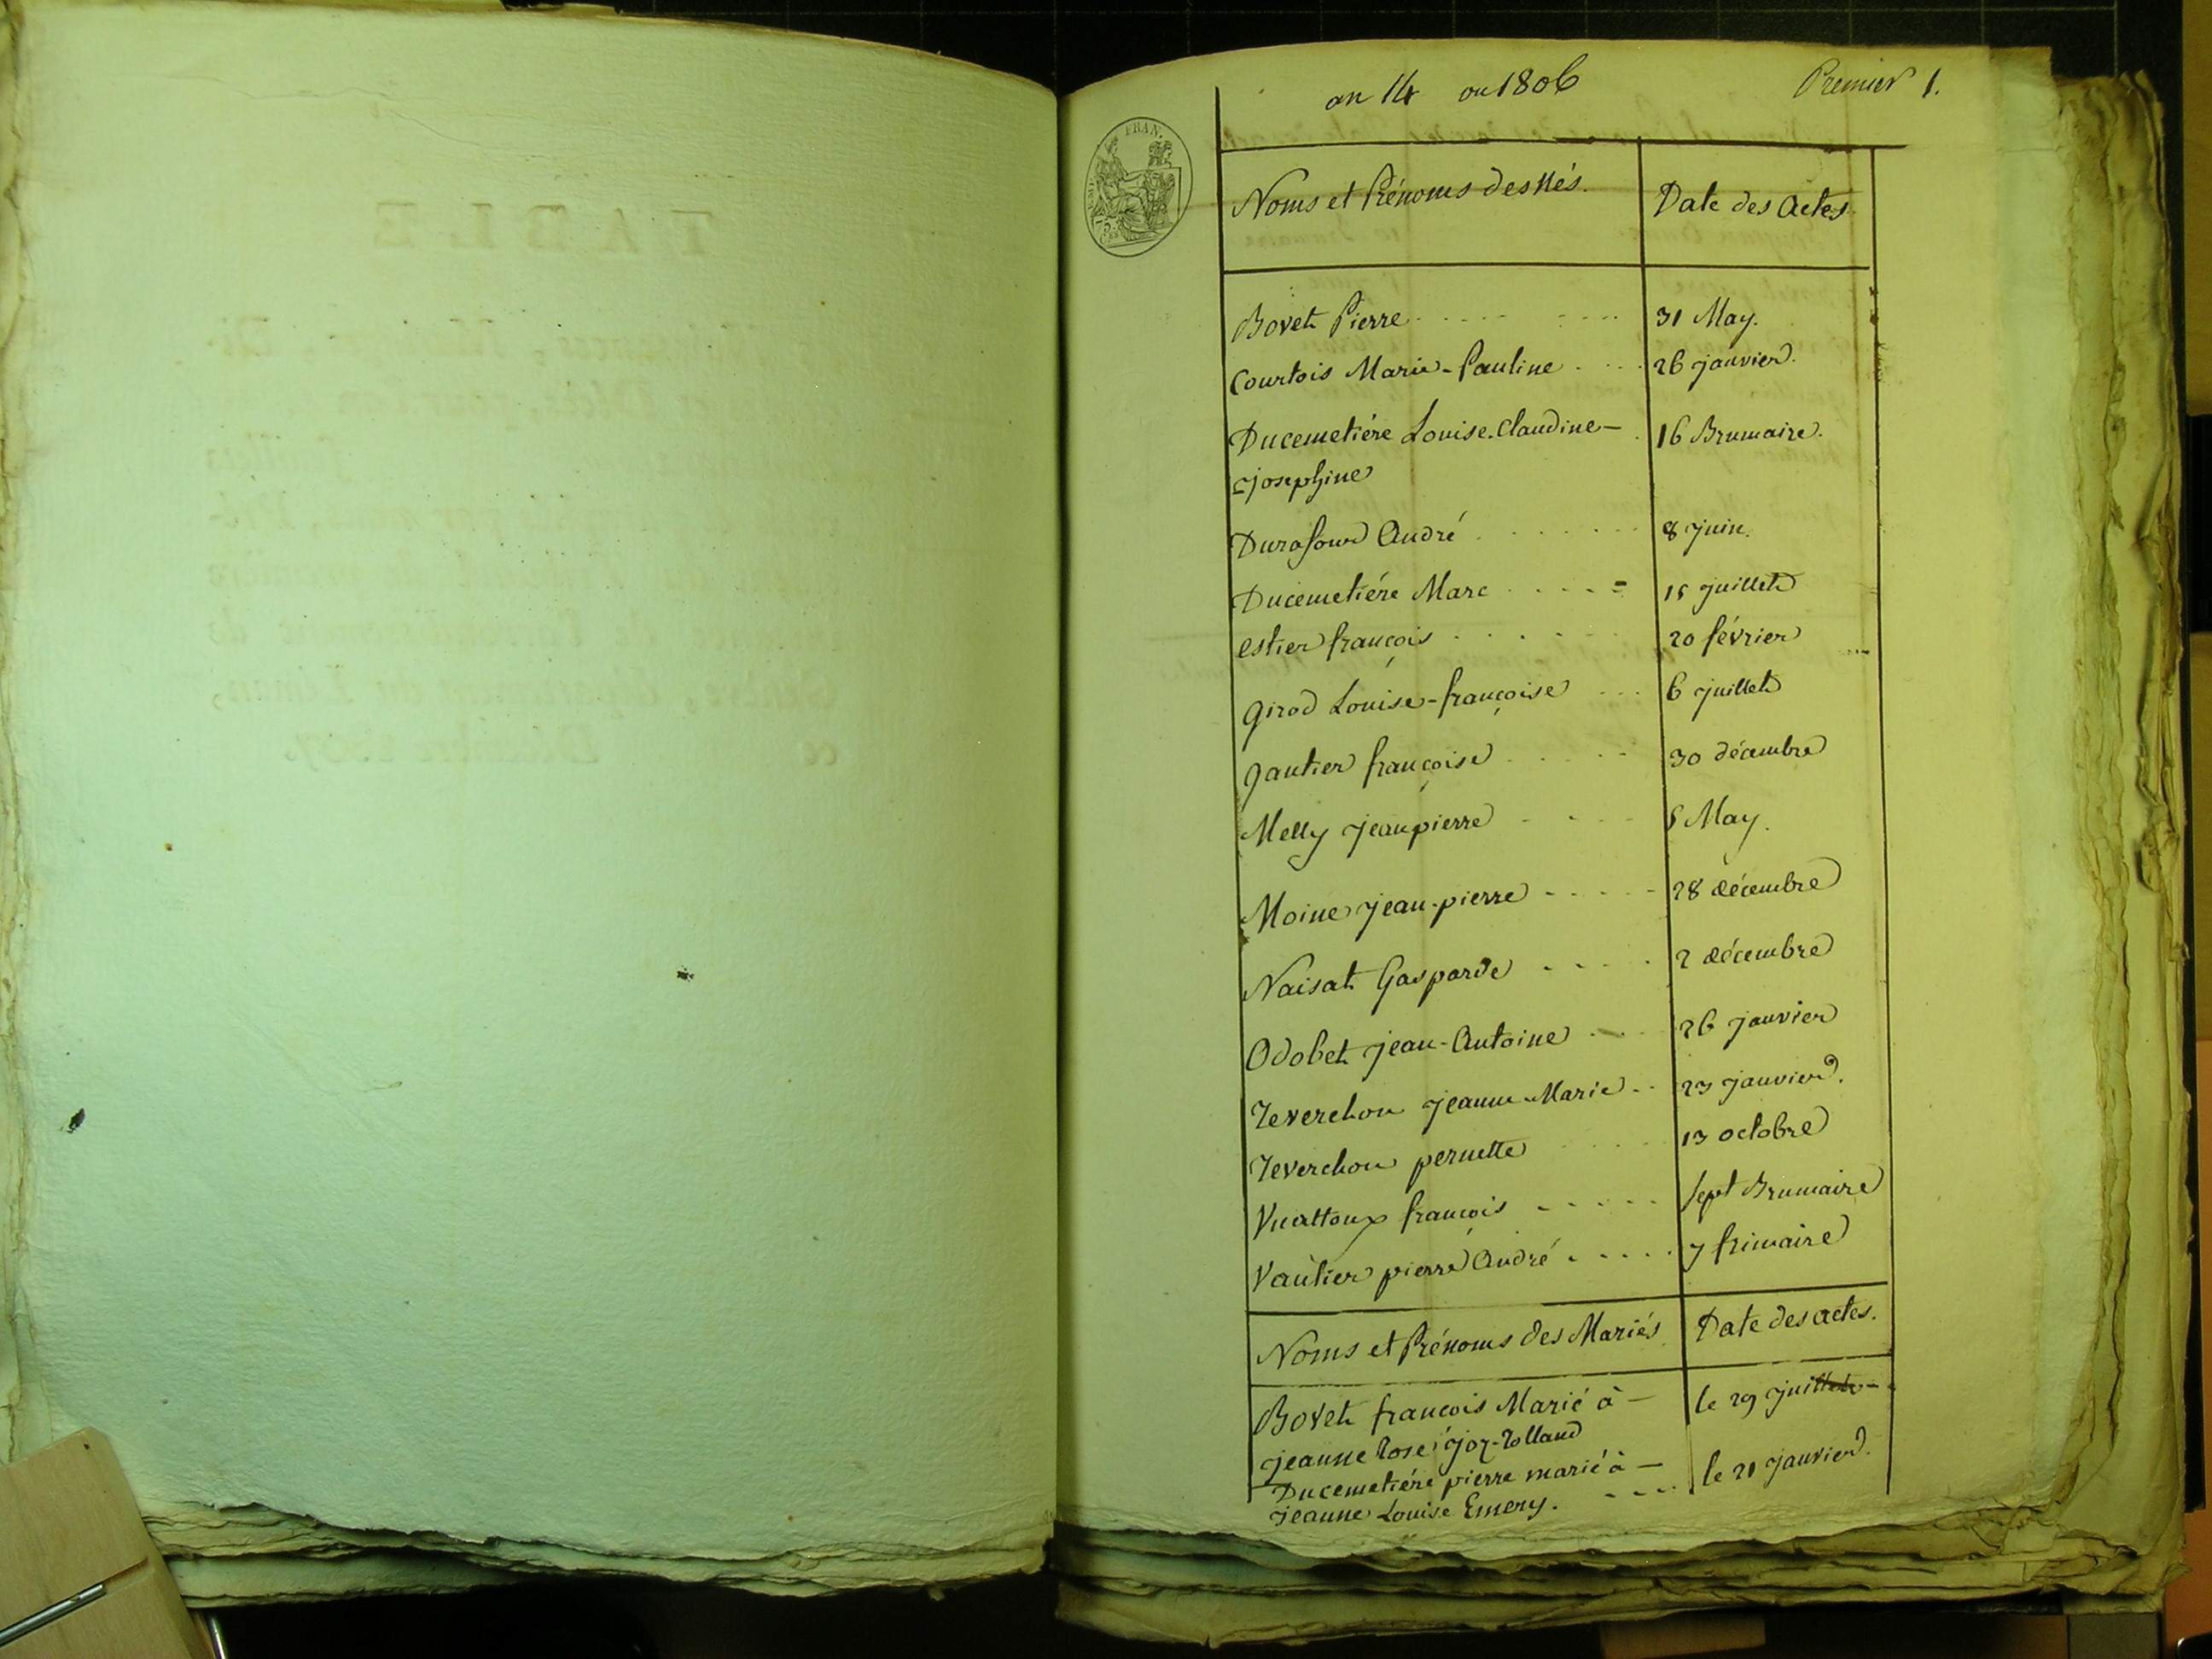 an 14 ou 1806
Premier 1.
FRAN.
Noms et Prénoms des Nés. Date des Actes
Bovet Pierre 31 May.
Courtois Marie-Pauline 26 janvier.
Ducemetiére Louise-Claudine- 16 Brumaire.
josephine
Durafour André 8 juin.
Ducemetiére Marc 15 juillet
estier françois 20 février
girod Louise-françoise 6 juillet
gautier françoise 30 décembre
Melly jeanpierre 5 May.
Moine jean-pierre 28 décembre
Naisat Gasparde 2 décembre
Odobet jean-Antoine 26 janvier
Reverchon jeanne-Marie 23 janvier.
Reverchon pernette 13 octobre
Vuattoux françois sept Brumaire
Vautier pierre André 7 frimaire
Noms et Prénoms des Mariés Date des actes.
Bovet françois Marié à le 29 juillet
jeanne Rose joz-Rolland
Ducemetiére pierre marié à
jeanne Louise Emery. le 21 janvier.